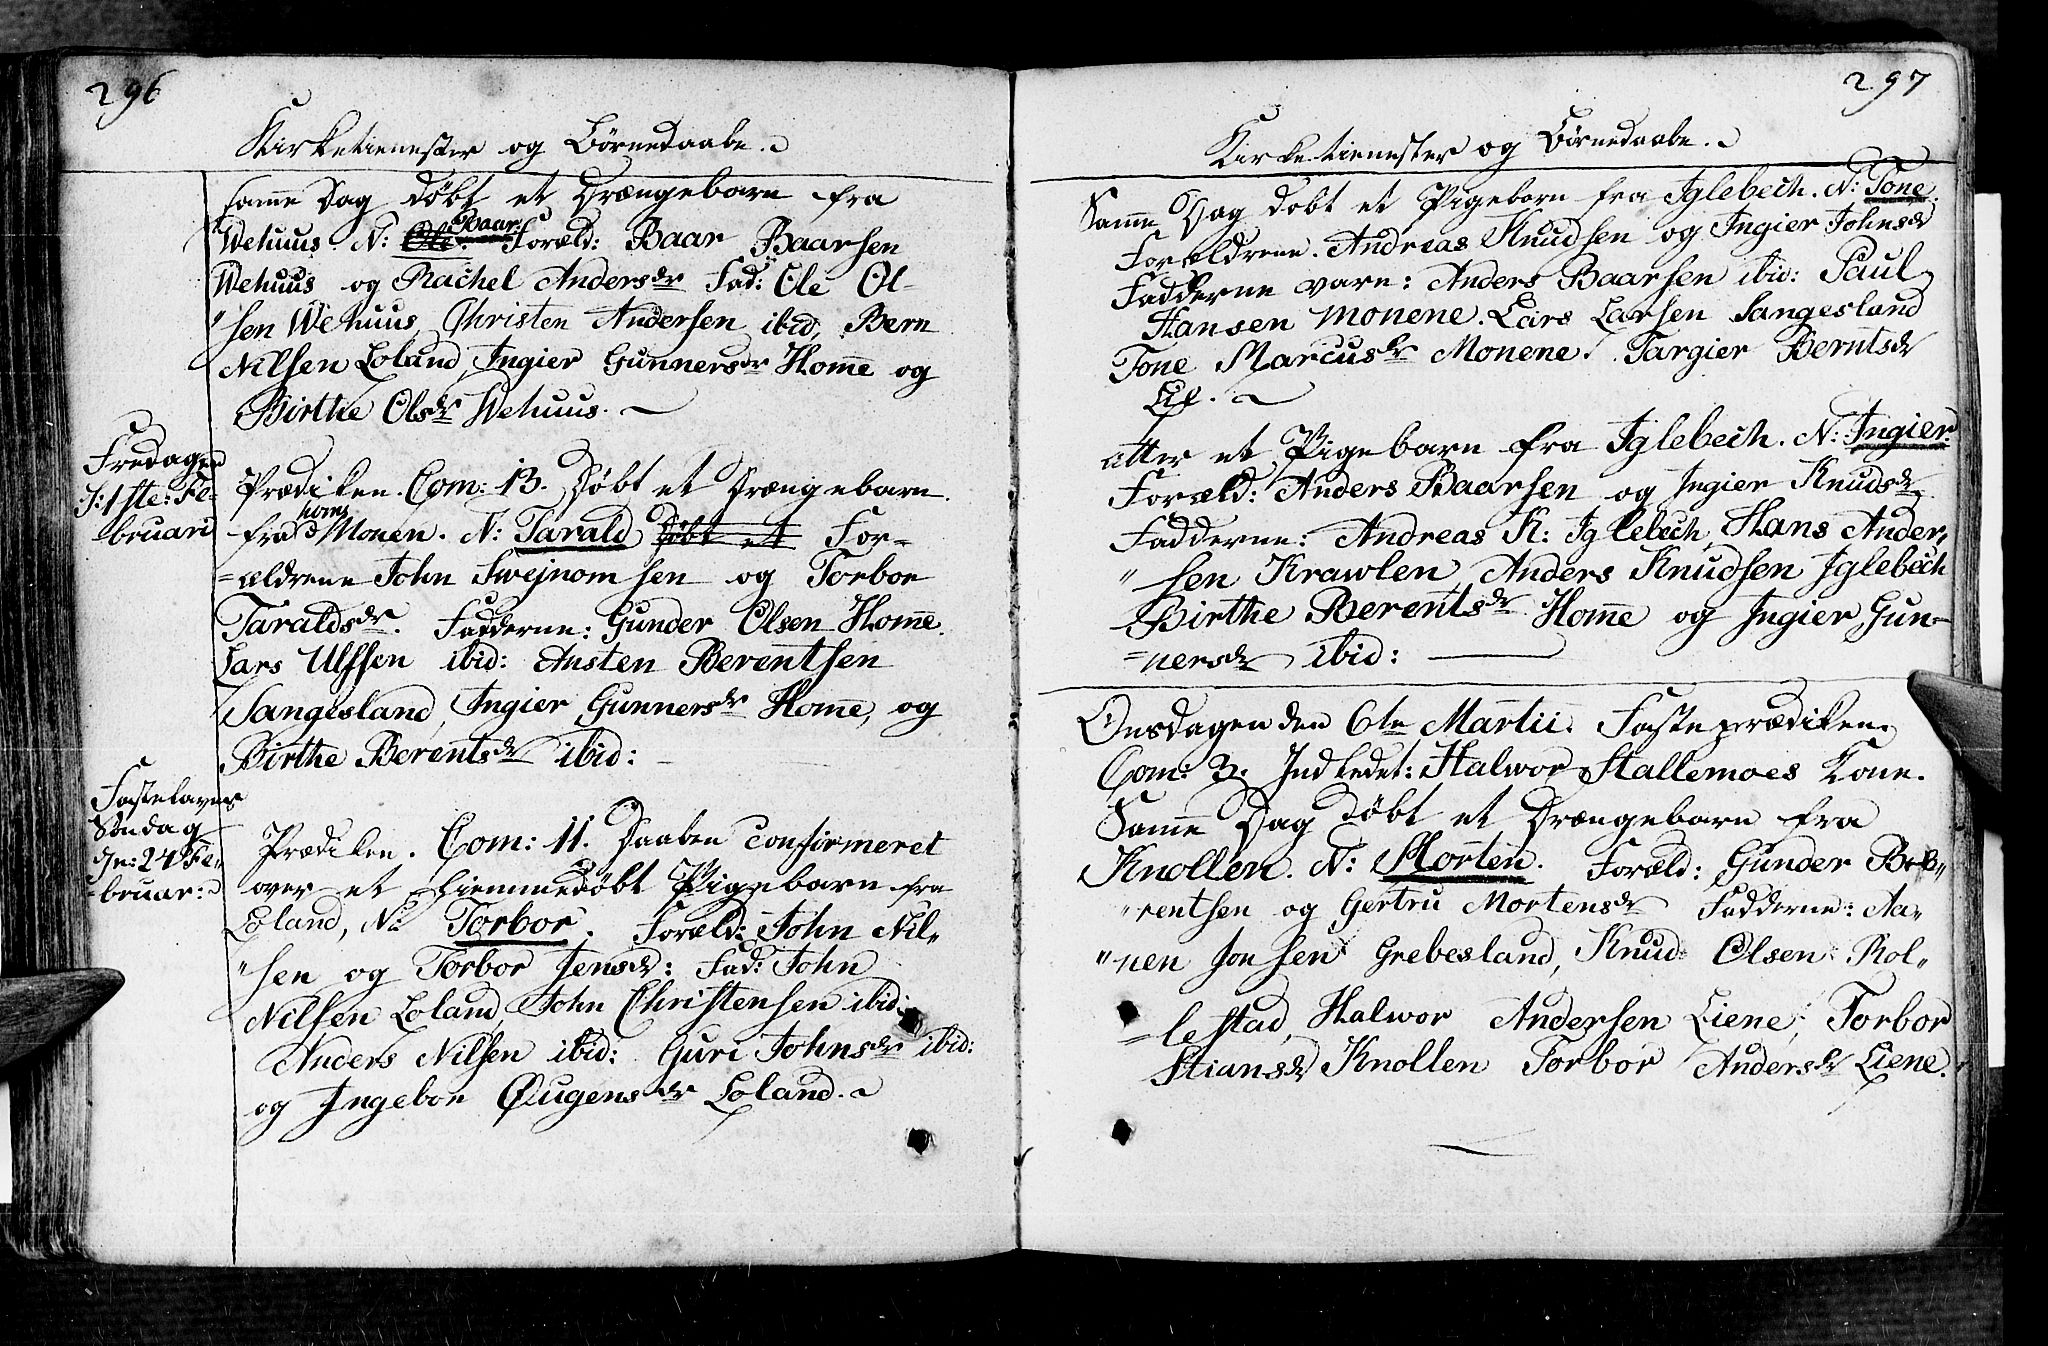 296
Kirketienester og Börnedaabe.
samme Dag döbt et Drængebarn fra
Wehuus N: Ole Baar Foræld: Baar Baarsen
Wehuus og Rachel Andersdr Fad: Ole Ol-
"sen Wehuus, Christen Andersen ibid, Bern
Nilsen Loland, Ingier Gunnersdr Homme og
Birthe Olsdr Wehuus.
Fredagen
d: 1ste Fe-
bruari
Prædiken. Com: 13. Döbt et Drængebarn
fra Homs Monen. N: Tarald Döbt et For-
=ældrene John Swejnomsen og Torbor
Taraldsdr. Fadderne: Gunder Olsen Homme
Lars Ulfsen ibid: Austen Berentsen
Sangesland, Ingier Gunnersdr Homme, og
Birthe Berentsdr ibid:
Fastelavns
Söndag
dn: 24 Fe-
-bruar:
Prædiken. Com: 11. Daaben confirmeret
over et hiemmedöbt Pigebarn fra
Loland, N: Torbor. Foræld: John Nil-
"sen og Torbor Jensdr: Fad: John
Nilsen Loland, John Christensen ibid:
Anders Nilsen ibid: Guri Johnsdr ibid:
og Ingebor Øugensdr Loland.
297
Kirketienester og Börnedaabe.
Samme Dag döbt et Pigebarn fra Iglebech. N: Tone.
Forældrene. Andreas Knudsen og Ingier Johnsdr
Fadderne vare: Anders Baarsen ibid: Paul
Hansen Monene. Lars Larsen Sangesland
Tone Marcusdr Monene. Targier Berntsdr
Lie.
atter et Pigebarn fra Iglebech. N: Ingier.
Foræld: Anders Baarsen og Ingier Knudsdr
Fadderne: Andreas K: Iglebech, Hans Ander-
"sen Krawlen, Anders Knudsen Iglebech
Birthe Berentsdr Homme og Ingier Gun-
=nersdr ibid:
Onsdagen den 6te Martii. Fasteprædiken.
Com: 3. Indledet: Halwor Stallemoes Kone.
Samme Dag döbt et Drængebarn fra
Knollen. N: Morten. Foræld: Gunder Be-
"rentsen og Gertru Mortensdr Fadderne: Aa-
"nen Jonsen Grebesland, Knud Olsen Rol-
=lestad, Halwor Andersen Liene, Torbor
Stiansdr Knollen Torbor Andersdr Liene.